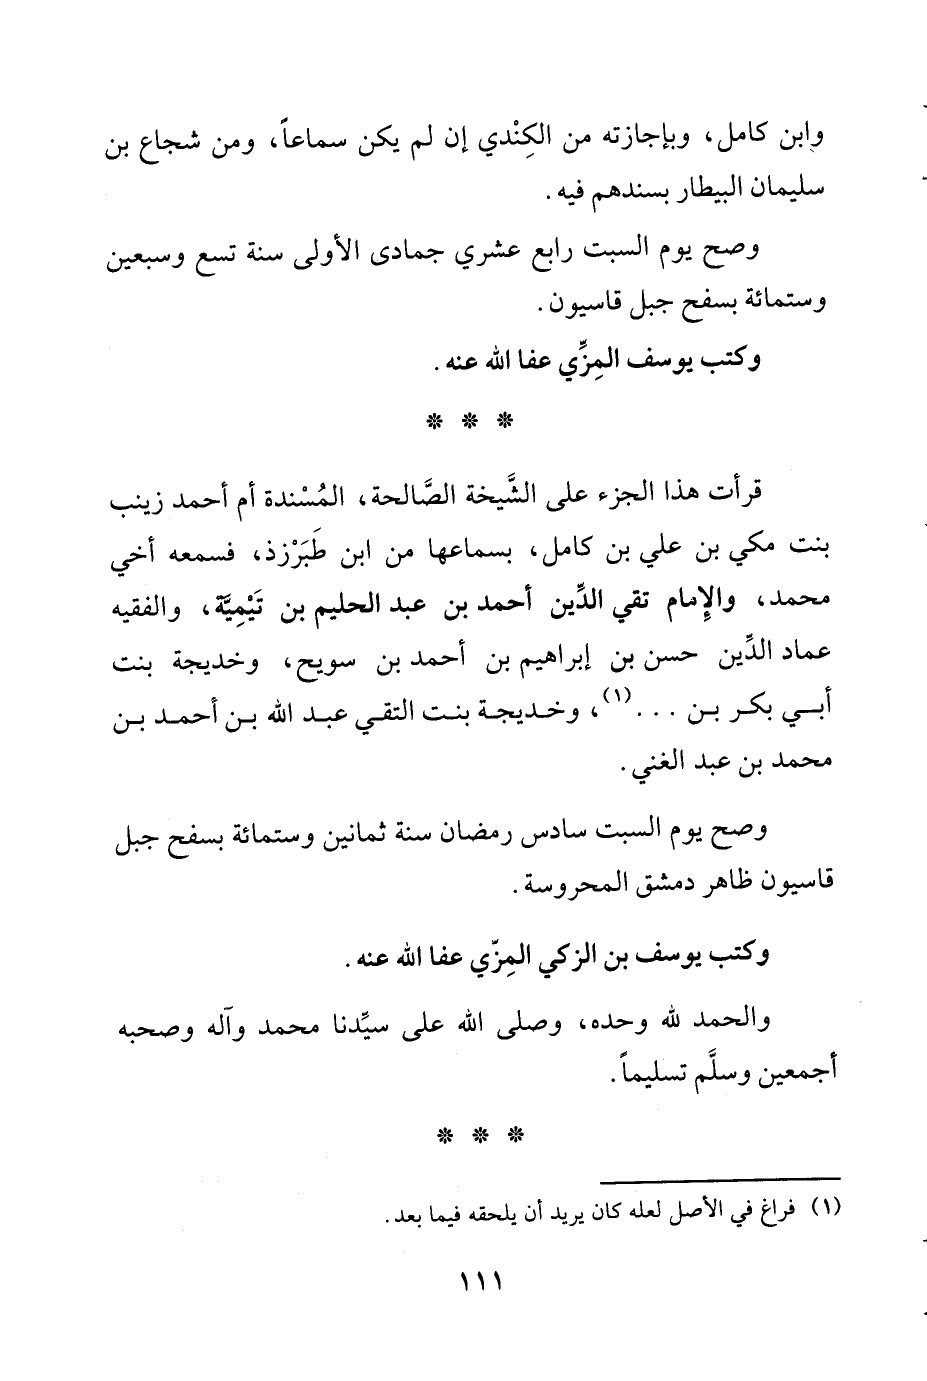 وابن كامل، وبإجازته من الكِنْدي إن لم يكن سماعاً، ومن شجاع بن
سليمان البيطار بسندهم فيه.
وصح يوم السبت رابع عشري جمادى الأولى سنة تسع وسبعين
وستمائة بسفح جبل قاسيون.
وكتب يوسف المِزِّي عفا الله عنه.
* * *
قرأت هذا الجزء على الشَّيخة الصَّالحة، المُسْندة أم أحمد زينب
بنت مكي بن علي بن كامل، بسماعها من ابن طَبَرْزذ، فسمعه أخي
محمد، والإِمام تقي الدِّين أحمد بن عبد الحليم بن تَيْمِيَّة، والفقيه
عماد الدِّين حسن بن إبراهيم بن أحمد بن سويح، وخديجة بنت
أبي بكر بن ...(١)، وخديجة بنت التقي عبد الله بن أحمد بن
محمد بن عبد الغني.
وصح يوم السبت سادس رمضان سنة ثمانين وستمائة بسفح جبل
قاسيون ظاهر دمشق المحروسة.
وكتب يوسف بن الزكي المِزّي عفا الله عنه.
والحمد لله وحده، وصلى الله على سيِّدنا محمد وآله وصحبه
أجمعين وسلَّم تسليماً.
* * *
(١) فراغ في الأصل لعله كان يريد أن يلحقه فيما بعد.
١١١